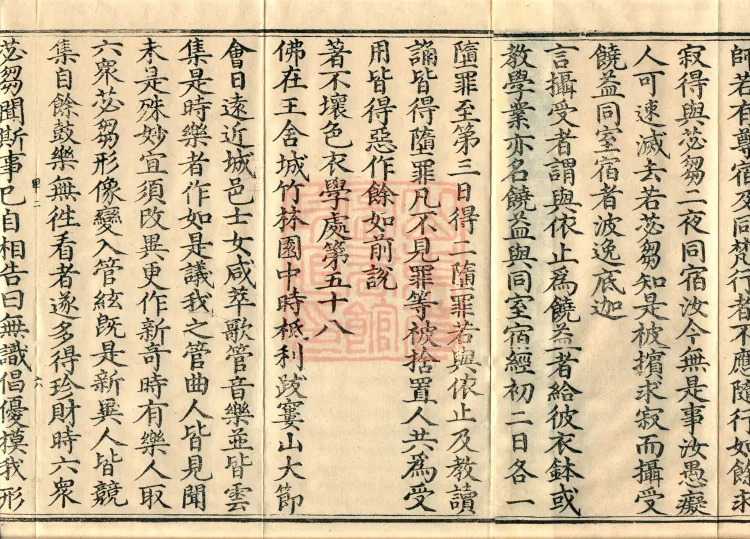 師若有尊宿及同梵行者不應隨行如餘求
寂得與苾芻二夜同宿汝今無是事汝愚癡
人可速滅去若苾芻知是被擯求寂而攝受
饒益同室宿者波逸底迦
言攝受者謂與依止爲饒益者給彼衣鉢或
教學業亦名饒益與同室宿經初二日各一
隨罪至第三日得二隨罪若與依止及教讀
誦皆得隨罪凡不見罪等被捨置人共爲受
用皆得惡作餘如前說
著不壞色衣學處第五十八
佛在王舍城竹林園中時祗利跋窶山大節
會日遠近城邑士女咸萃歌管音樂並皆雲
集是時樂者作如是議我之管曲人皆見聞
未是殊妙宜須改異更作新奇時有樂人取
六衆苾芻形像變入管絃旣是新異人皆競
集自餘鼓樂無徃看者遂多得珍財時六衆
甲二
六
苾芻聞斯事已自相告曰無識倡優摸我形